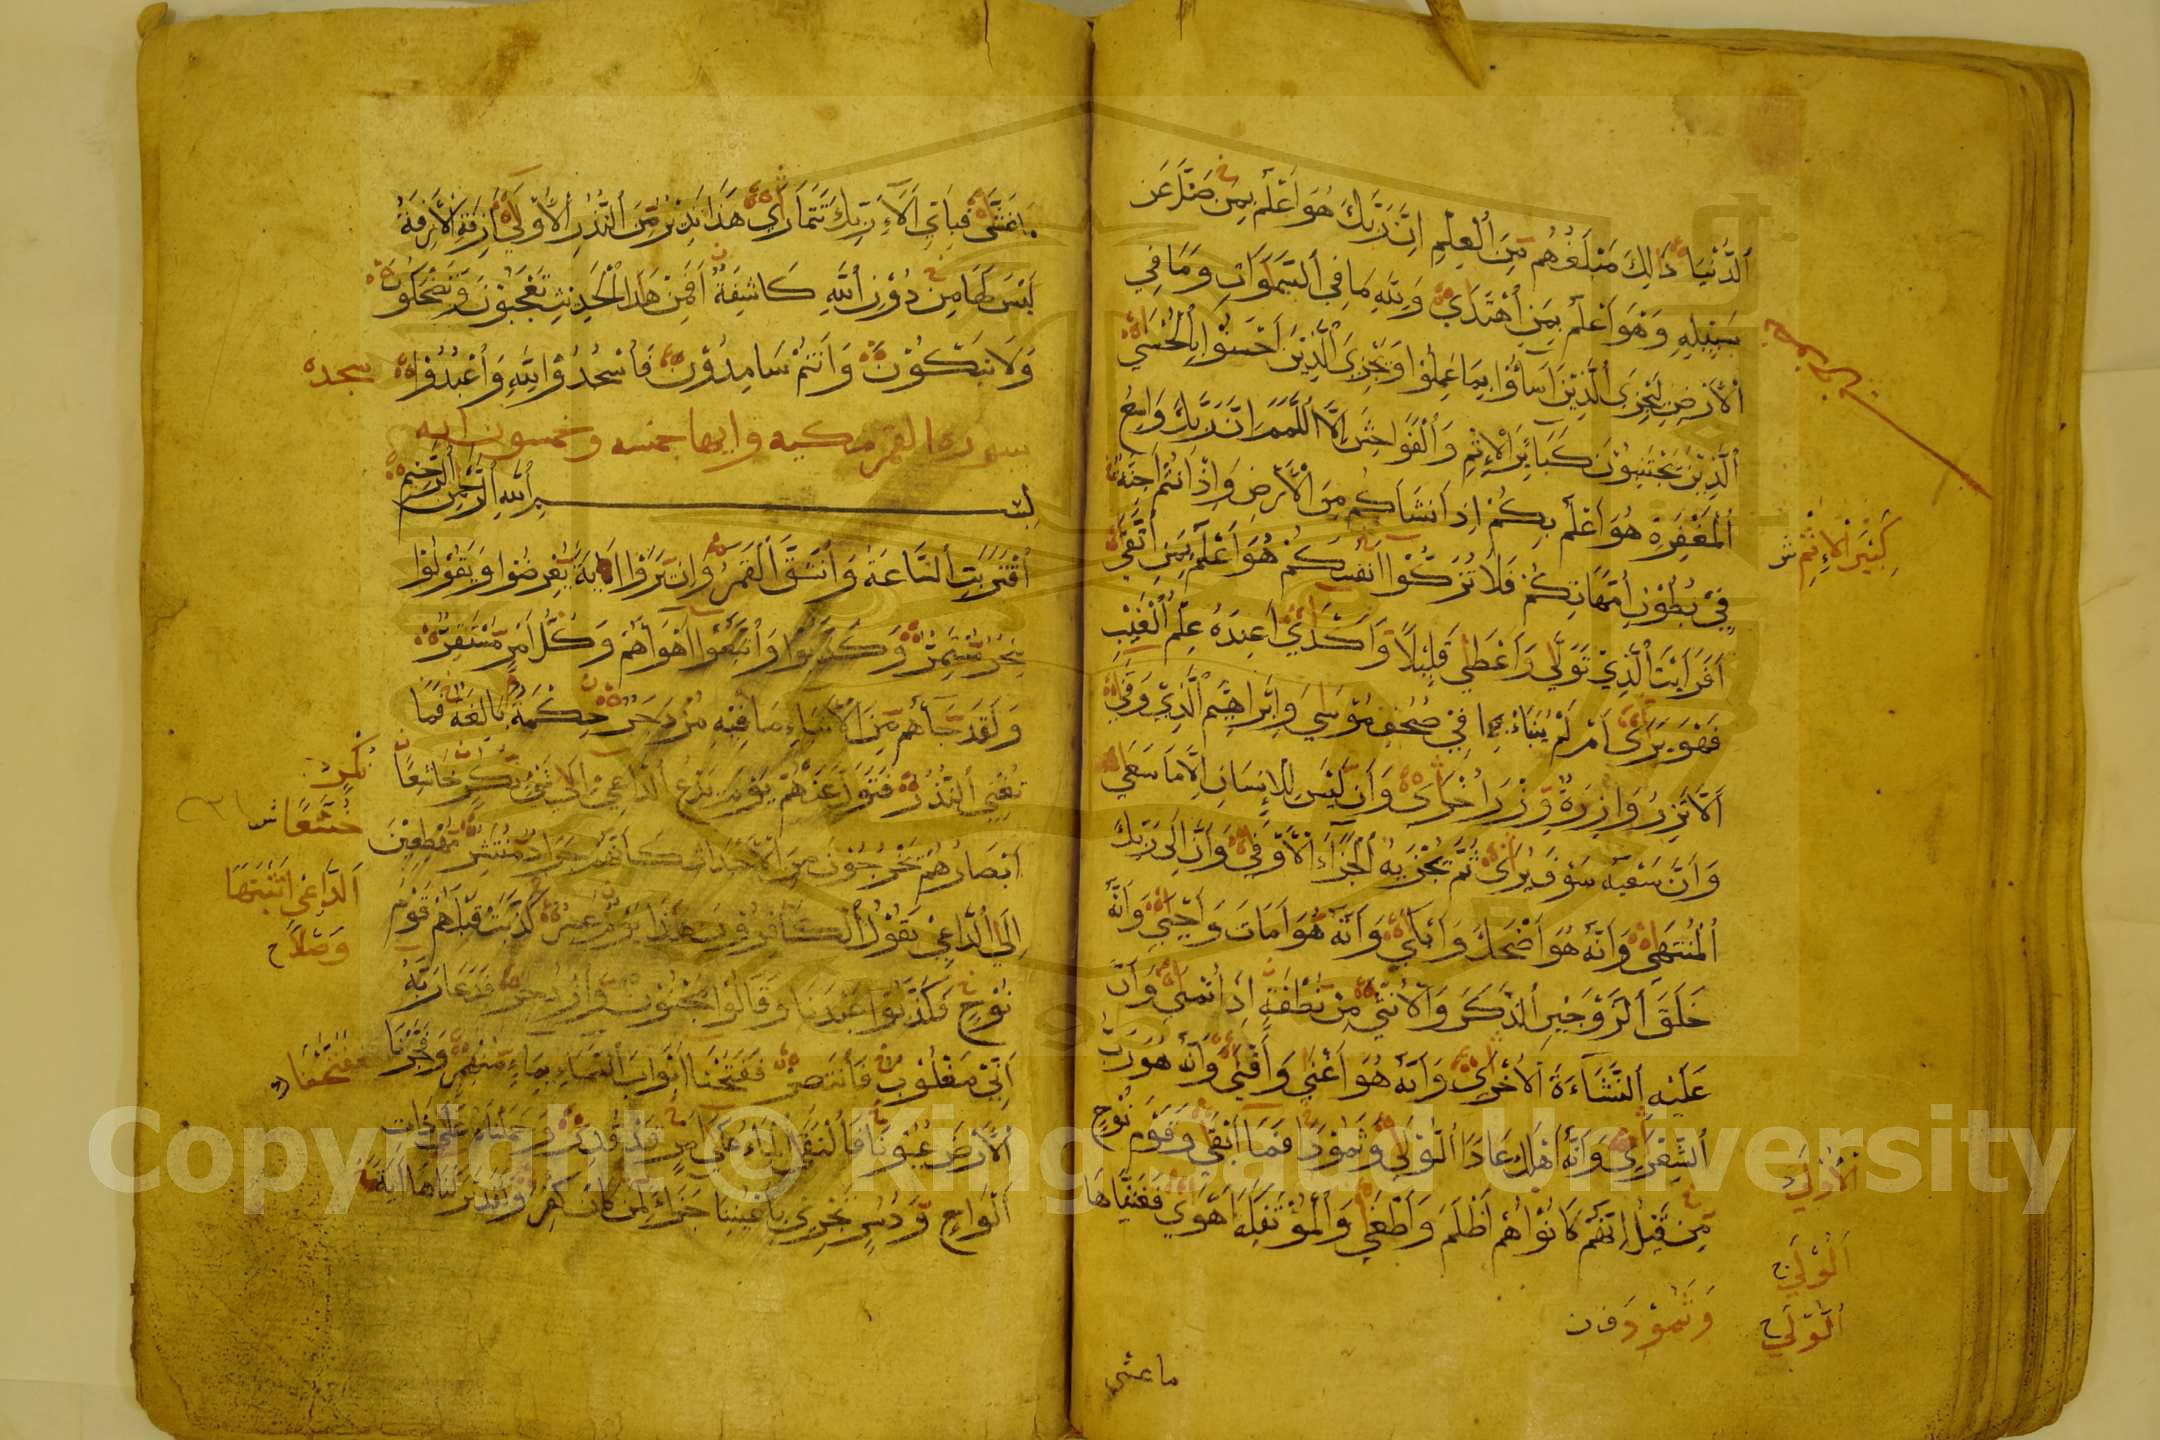 ٱلدُّنْيَا ذَالِكَ مَبْلَغُهُم مِّنَ ٱلْعِلْمِ اِنَّ رَبَّكَ هُوَ اَعْلَمُ بِمَن ضَلَّ عَن
سَبِيْلِهِ وَهْوَ اَعْلَمُ بِمَنِ ٱهْتَدَي وَلِلّٰهِ مَا فِي ٱلسَّمَوَاتِ وَمَا فِي
ٱلْاَرْضِ لِيَجْزِيَ ٱلَّذِيْنَ اَسَاؤُا بِمَا عَمِلُوْا وَيَجْزِيَ ٱلَّذِيْنَ اَحْسَنُوْا بِالْحُسْنَي
ٱلَّذِيْنَ يَجْتَنِبُوْنَ كَبَائِرَ ٱلْاِثْمِ وَٱلْفَوَاحِشَ اِلَّا ٱللَّمَمَ اِنَّ رَبَّكَ وَاسِعُ
ٱلْمَغْفِرَةِ هُوَ اَعْلَمُ بِكُمْ اِذ اَنشَاَكُم مِنَ ٱلْاَرْضِ وَاِذْ اَنْتُمْ اَجِنَّةٌ
فِي بُطُوْنِ اُمَّهَاتِكُمْ فَلَا تُزَكُّوْا اَنفُسَكُمْ هُوَ اَعْلَمُ بِمَنِ ٱتَّقَي
اَفَرَاَيْتَ ٱلَّذِيْ تَوَلَّي وَاَعْطَي قَلِيْلًا وَاَكْدَي اَعِندَهُ عِلْمُ ٱلْغَيْبِ
فَهْوَ يَرَي اَمْ لَمْ يُنَبَّاءْ بِمَا فِيْ صُحُفِ مُوْسَي وَاِبْرَاهِيْمَ ٱلَّذِيْ وَفَّي
اَلَّا تَزِرُ وَازِرَةٌ وِّزْرَ اُخْرَي وَاَن لَّيْسَ لِلْاِنْسَانِ اِلَّا مَا سَعَي
وَاَنَّ سَعْيَهُ سَوْفَ يُرَي ثُمَّ يُجْزَيهُ ٱلْجَزَاءَ ٱلْاَوْفَي وَاَنَّ اِلَي رَبِّكَ
ٱلْمُنْتَهَي وَاَنَّهُ هُوَ اَضْحَكَ وَاَبْكَي وَاَنَّهُ هُوَ اَمَاتَ وَاَحْيَي وَاَنَّهُ
خَلَقَ ٱلزَّوْجَيْنِ ٱلذَّكَرَ وَٱلْاُنْثَي مِنْ نُطْفَةٍ اِذَا تُمْنَي وَاَنَّ
عَلَيْهِ ٱلنَّشَاءَةَ ٱلْاُخْرَي وَاَنَّهُ هُوَ اَغْنَي وَاَقْنَي وَاَنَّهُ هُوَ رَبُّ
ٱلشِّعْرَي وَاَنَّهُ اَهْلَكَ عَادَا ٱلُّوْلَي وَثَمُوْدًا فَمَا اَبْقَي وَقَوْمَ نُوْحٍ
مِّن قَبْلُ اِنَّهُمْ كَانُوْا هُمْ اَظْلَمَ وَاَطْغَي وَٱلْمُؤْتَفِكَةَ اَهْوَي فَغَشَّاهَا
كَبِيْرَ ٱلْاِثْمِ ش
ٱلْاُوْلَي
اَلُوْلَي
ٱلُّوْلَي
وَثَمُوْدَ ف ن
ما غشى
مَا غَشَّي فَبِاَيِّ اٰلَاءِ رَبِّكَ تَتَمَارَي هَذَا نَذِيْرٌ مِّنَ ٱلنُّذُرِ ٱلْاُوْلَي اَزِفَةِ ٱلْاٰزِفَةُ
لَيْسَ لَهَا مِنْ دُوْنِ ٱللّٰهِ كَاشِفَةٌ اَفَمِنْ هَذَا ٱلْحَدِيْثِ تَعْجَبُوْنَ وَتَضْحَكُوْنَ
وَلَا تَبْكُوْنَ وَاَنتُمْ سَامِدُوْنَ فَاسْجُدُوْا لِلّٰهِ وَٱعْبُدُوْا
سجده
سورة القمر مكيه وايها خمسه وخمسون ايه
بِسْمِ ٱللّٰهِ ٱلرَّحْمٰنِ ٱلرَّحِيْمِ
ٱقْتَرَبَتِ ٱلسَّاعَةُ وَٱنْشَقَّ ٱلْقَمَرُ وَاِن يَّرَوْا اٰيَةً يُّعْرِضُوْا وَيَقُوْلُوْا
سِحْرٌ مُّسْتَمِرٌّ وَكَذَّبُوْا وَٱتَّبَعُوْا اَهْوَاءَهُمْ وَكُلُّ اَمْرٍ مُّسْتَقِرٌّ
وَلَقَد جَّاءَهُم مِّنَ ٱلْاَنْبَاءِ مَا فِيْهِ مُزْدَجَرٌ حِكْمَةٌ بَالِغَةٌ فَمَا
تُغْنِي ٱلنُّذُرُ فَتَوَلَّ عَنْهُمْ يَوْمَ يَدْعُ ٱلدَّاعِيْ اِلَي شَيْءٍ نُّكُرٍ خَاشِعًا
اَبْصَارُهُمْ يَخْرُجُوْنَ مِنَ ٱلْاَجْدَاثِ كَاَنَّهُمْ جَرَادٌ مُّنْتَشِرٌ مُّهْطِعِيْنَ
اِلَي ٱلدَّاعِيْ يَقُوْلُ ٱلْكَافِرُوْنَ هَذَا يَوْمٌ عَسِرٌ كَذَّبَتْ قَبْلَهُمْ قَوْمُ
نُوْحٍ فَكَذَّبُوْا عَبْدَنَا وَقَالُوْا مَجْنُوْنٌ وَّٱزْدُجِرَ فَدَعَا رَبَّهُ
اَنِّيْ مَغْلُوْبٌ فَانْتَصِرْ فَفَتَحْنَا اَبْوَابَ ٱلسَّمَاءِ بِمَاءٍ مُّنْهَمِرٍ وَفَجَّرْنَا
ٱلْاَرْضَ عُيُوْنًا فَالْتَقَي ٱلْمَاءُ عَلَي اَمْرٍ قَدْ قُدِرَ وَحَمَلْنَاهُ عَلَي ذَاتِ
اَلْوَاحٍ وَّدُسُرٍ تَجْرِيْ بِاَعْيُنِنَا جَزَاءً لِّمَن كَانَ كُفِرَ وَلَقَد تَّرَكْنَاهَا اٰيَةً
نُكْرٍ
خُشَّعًا
اَلدَّاعِي اَثْبَتَهَا
وَصْلًا ح
فَفَتَّحْنَا
Copyright © King Saud University